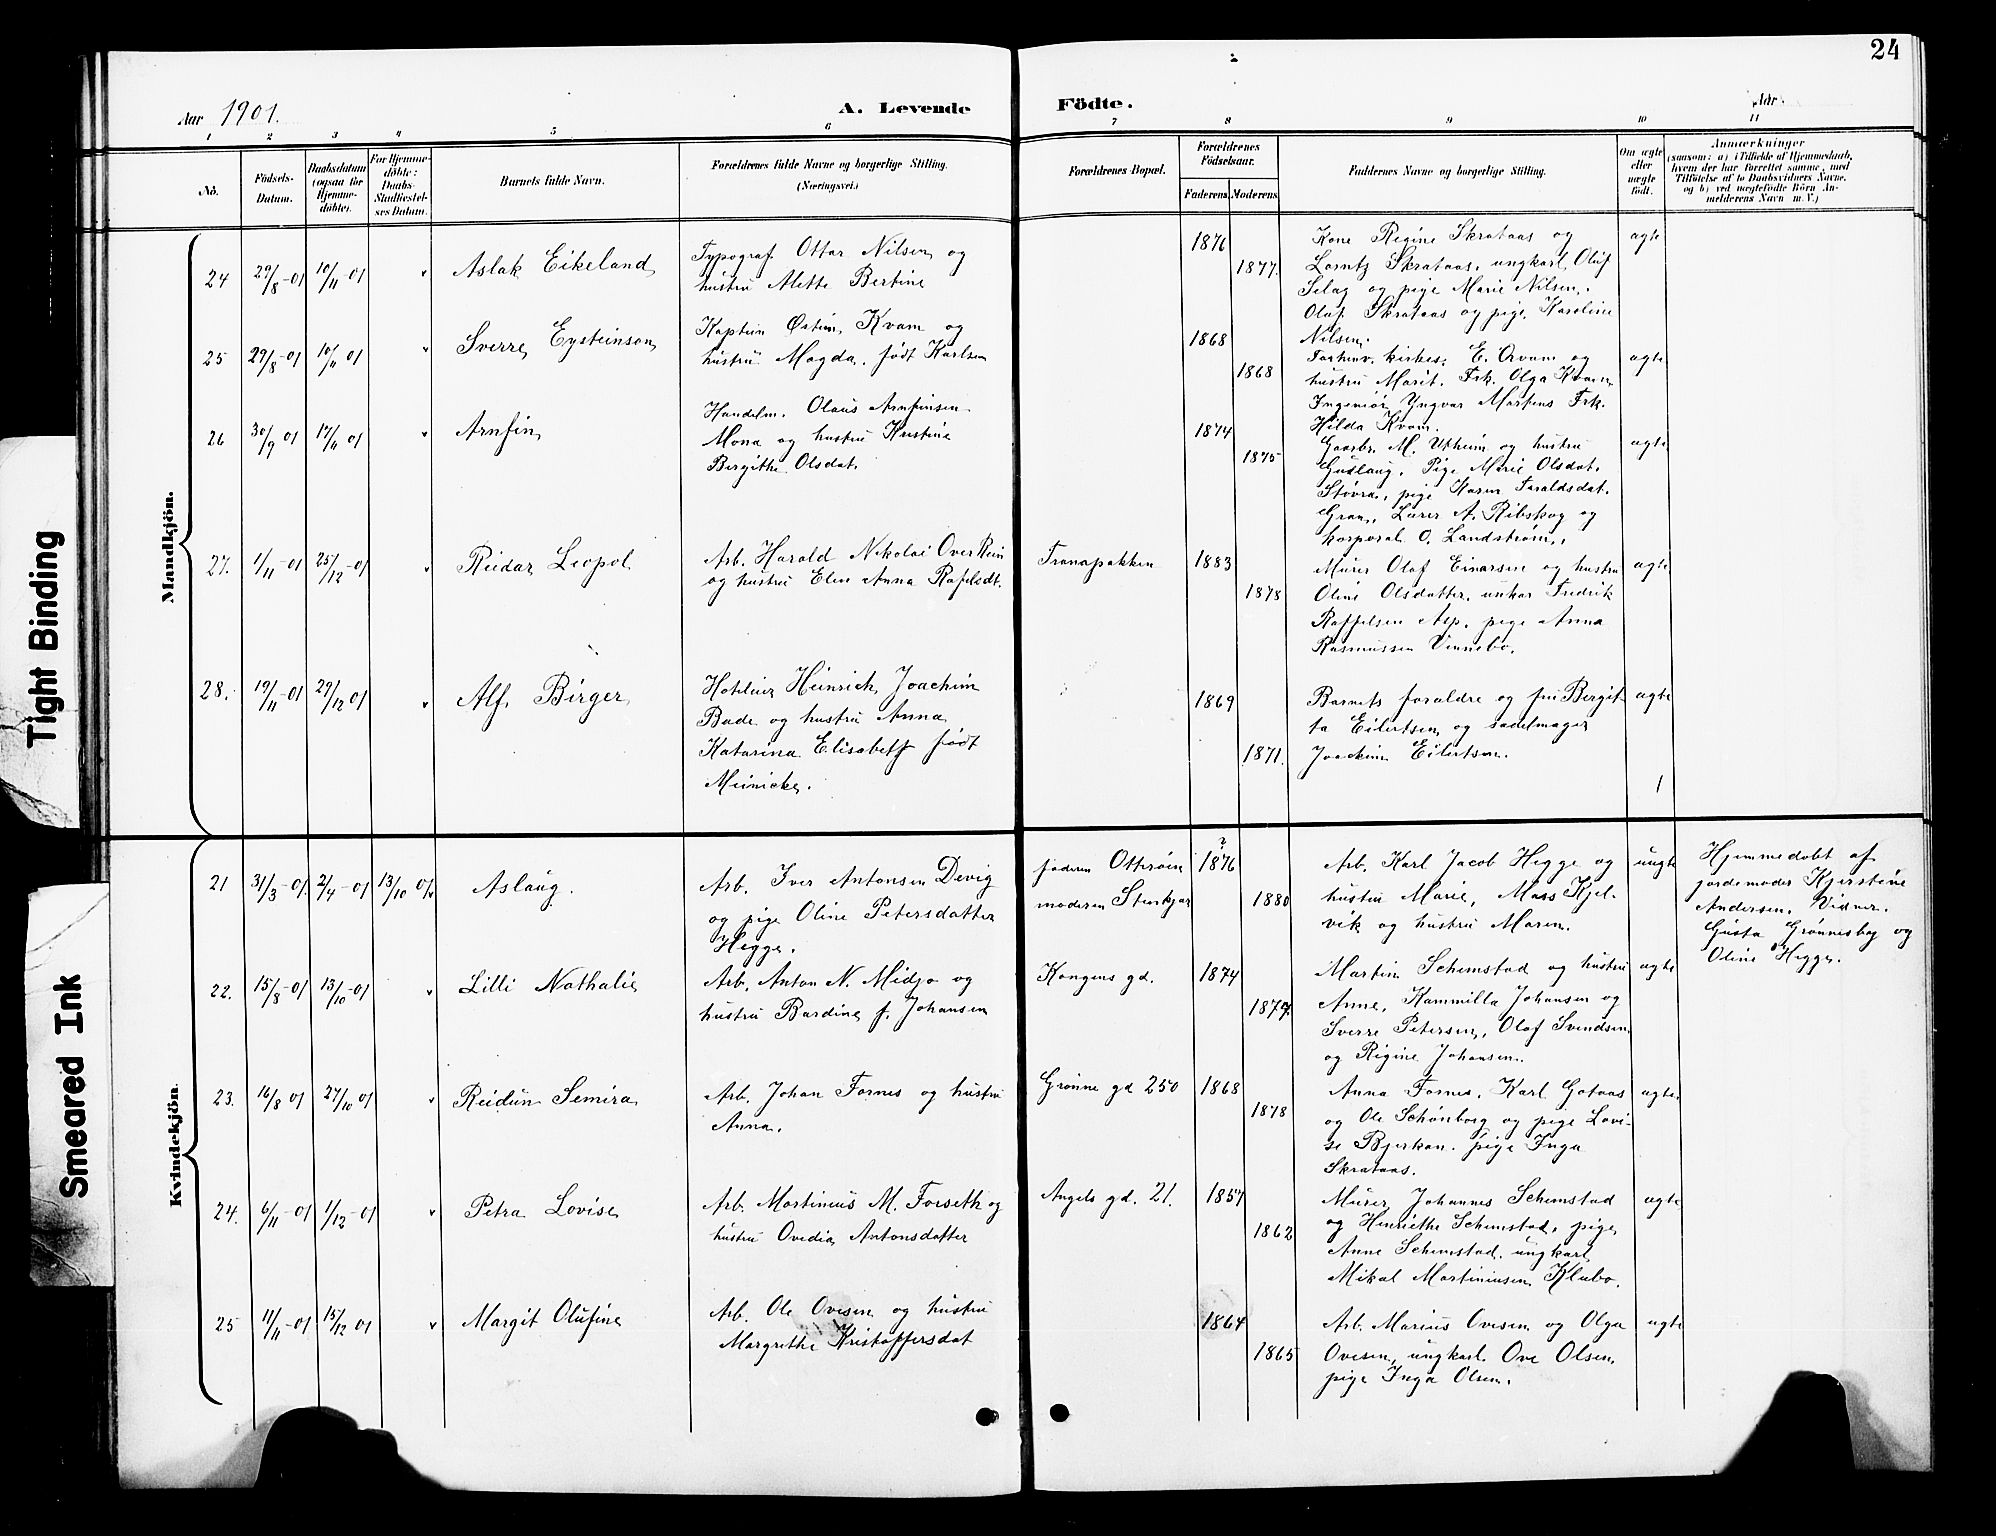 24
Aar 1901.
A. Levende
Födte.
Aar
1 2 3 4 5 6 7 8 9 10 11
No.
Födsels-
Datum.
Daabsdatum
(ogsaa for
Hjemme-
döbte).
For Hjemme-
döbte:
Daabs-
Stadfæstel-
ses Datum.
Barnets fulde Navn.
Forældrenes fulde Navne og borgerlige Stilling.
(Næringsvei.)
Forældrenes Bopæl.
Forældrenes
Födselsaar.
Faderens. Moderens.
Faddernes Navne og borgerlige Stilling.
Om ægte
eller
uægte
födt.
Anmærkninger
(saasom: a) i Tilfælde af Hjemmedaab,
hvem der har forrettet samme, med
Tilföielse af to Daabsvidners Navne,
og b) ved uægtefödte Börn An-
melderens Navn m. V.)
Mandkjön.
24 29/8-01 10/11-01 " Aslak Eikeland
Typograf Ottar Nilsen og
hustru Alette Bertine
1876
1877.
Kone Regine Skrataas og
Lorntz Skrataas, ungkarl Oluf
Selag og pige Marie Nilsen.
Olaf Skrataas og pige Karoline
Nilsen.
ægte
25 29/8-01 10/11 01 " Sverre Eysteinson
Kaptein Østein Kvam og
hustru Magda, født Karlsen
1868
1868
Forhenv. kirkes. E. Kvam og
hustru Marit. Frk. Olga Kvam
Ingeniør Yngvar Martens Frk.
Hilda Kvam.
ægte
26 30/9 01 17/11 01 " Arnfin
Handelm. Olaus Arnfinsen
Mona og hustru Kristine
Bergithe Olsdat.
1874
1875
Gaarbr. M. Utheim og hustru
Gudlaug. Pige Marie Olsdat.
Støvra, pige Karen Taraldsdat.
Gran, Lærer A. Ribskog og
korporal O. Landstrøm.
ægte
27. 1/11-01 25/12-01 " Reidar Leopol
Arb. Harald Nikolai Over Rein
og hustru Elen Anna Rafelsdt.
Tranapakken
1883
1878
Murer Olaf Einarsen og hustru
Oline Olsdatter, unkar Fredrik
Raffelsen Asp, pige Anna
Rasmussen Vinnebo.
ægte
28. 19/11-01 29/12 01 " Alf Birger
Heinrich Joachim
Bade og hustru Anna
Katarina Elisabeth født
Meinicke.
1869
1871.
Barnets forældre og fru Bergit-
ta Eilertsen og sadelmager
Joachim Eilertsen.
ægte
1
Kvindekjön.
21 31/3-01 2/4-01 13/10 01 Aslaug.
Arb. Iver Antonsen Devig
og pige Oline Petersdatter
Hegge.
faderen Otterøien
moderen Stenkjær
?
1876
1880
Arb. Karl Jacob Hegge og
hustru Marie, Mass Kjel-
vik og hustru Maren.
uægte
Hjemmedøbt af
jordemoder Kjerstine
Andersen. Vidner.
Gusta Grønnesby og
Oline Hegge.
22. 15/8-01 13/10-01 " Lilli Nathalie
Arb. Anton N. Midjo og
hustru Bardine f. Johansen
Kongens gd.
1874
1877.
Martin Schemstad og hustru
Anne, Kammilla Johansen og
Sverre Petersen, Olaf Svendsen
og Regine Johansen.
ægte
23. 16/8 01 27/10 01 " Reidun Semira
Arb. Johan Fornes og hustru
Anna.
Grønne gd 250
1868
1878
Anna Fornes, Karl Gotaas
og Ole Schönborg og pige Lovi-
se Bjerkan. pige Inga
Skrataas.
ægte.
24. 6/11-01 1/12-01 " Petra Lovise
Arb. Martinius M. Forseth og
hustru Ovedia Antonsdatter
Angels gd. 21.
1857
1862
Murer Johannes Schemstad
og Henriethe Schemstad, pige
Anne Schemstad, ungkarl
Mikal Martiniusen Klubo.
ægte
25 11/11-01 15/12 01 " Margit Olufine
Arb. Ole Ovesen og hustru
Margrethe Kristoffersdat
1864
1865
Arb. Marius Ovesen og Olga
Ovesen, ungkarl. Ove Olsen,
pige Inga Olsen.
ægte
Tight Binding
Smeared Ink